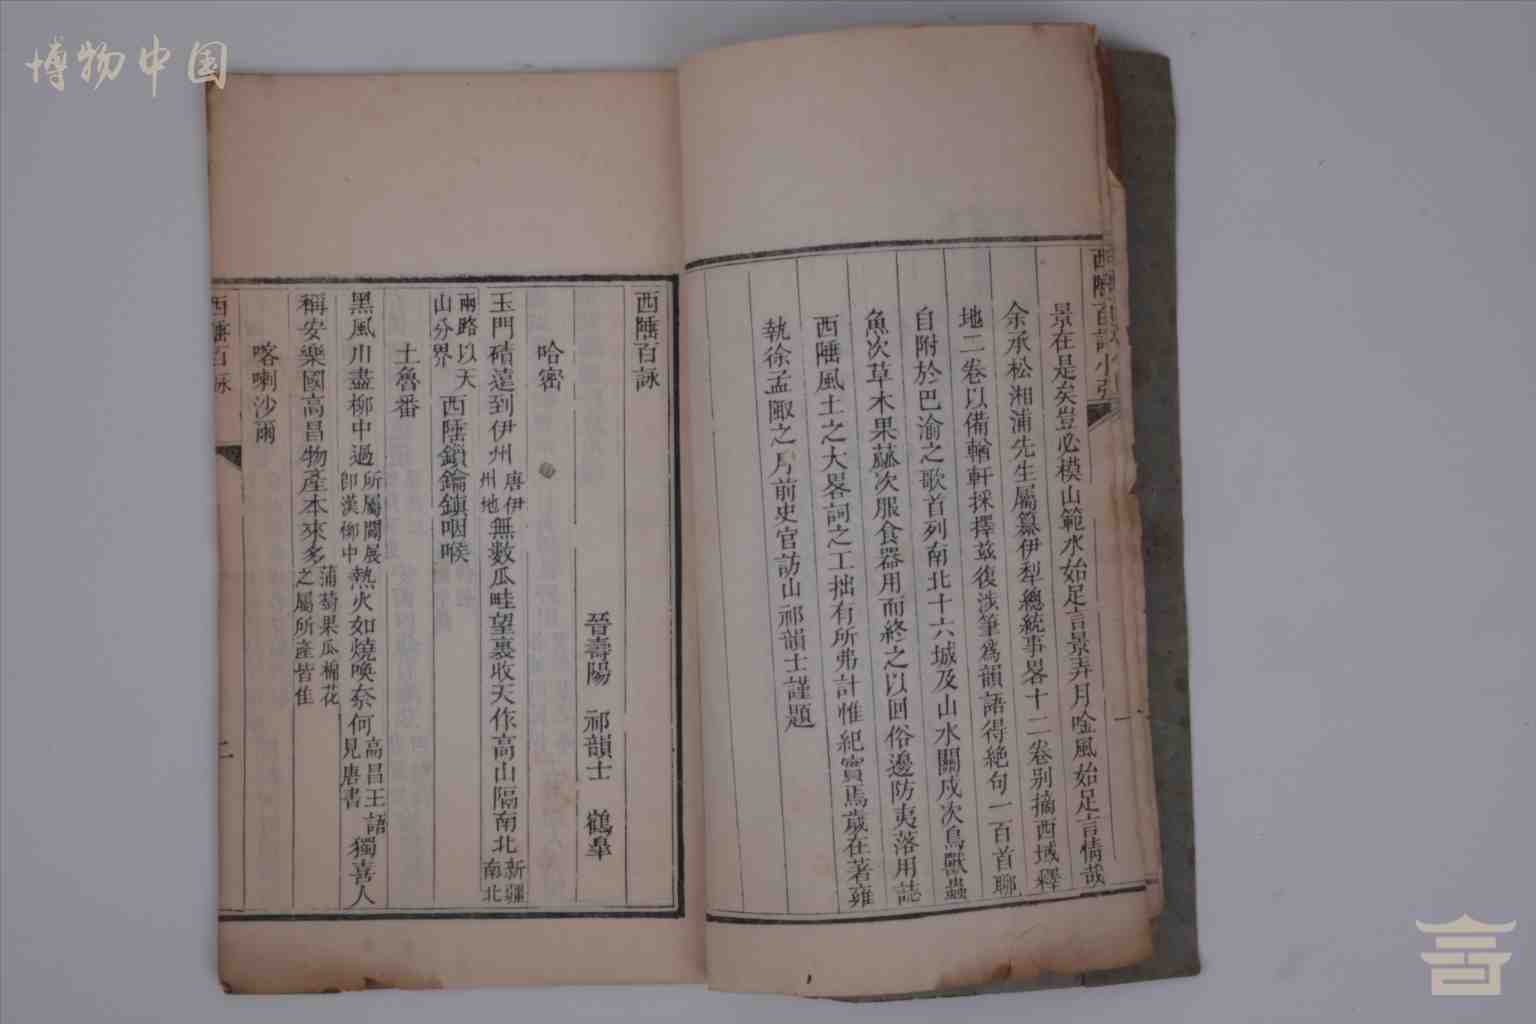 博物中国
景在是矣豈必模山範水始足言景弄月唫風始足言情哉
余承松湘浦先生屬纂伊犁總統事畧十二卷别摘西域釋
地二卷以備輶軒採擇兹復涉筆爲韻語得絶句一百首聊
自附於巴渝之歌首列南北十六城及山水關戍次鳥獸蟲
魚次草木果蓏次服食器用而終之以回俗邊防夷落用誌
西陲風土之大畧詞之工拙有所弗計惟紀實焉歲在著雍
執徐孟陬之月前史官訪山祁韻士謹題
西陲百詠
晉壽陽 祁韻士 鶴臯
哈密
玉門磧遠到伊州唐伊州地無數瓜畦望裏收天作高山隔南北新疆南北
兩路以天山分界西陲鎖鑰鎮咽喉
土魯番
黑風川盡柳中過所屬闢展卽漢柳中熱火如燒喚奈何高昌王語見唐書獨喜人
稱安樂國高昌物產本來多蒲萄果瓜棉花之屬所產皆佳
喀喇沙爾
西陲百詠
二